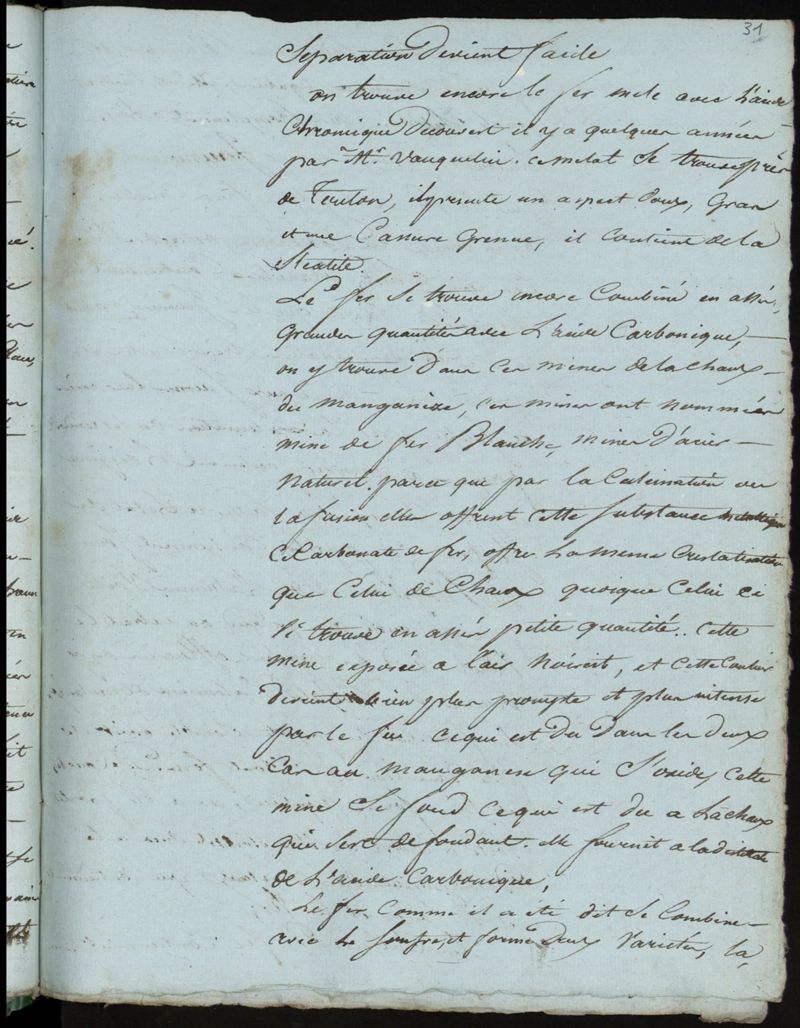 31
Separation Devient facile
on trouve encore le fer mele avec L'acide
Chromique Decouvert il y a quelques années
par Mr. Vauquelin. ce metal se trouve près
de Toulon, il presente un aspect Doux, Gras
et une Cassure Grenue, il contient de la
Steatite.
Le fer se trouve encore Combiné en assés
Grandes quantités avec L'acide Carbonique,
on y trouve Dans Ces mines de la chaux
du manganeze, ces mines ont nommées
mine de fer Blanche, mines D'acier
Naturel. parce que par la Calcination ou
la fusion elles offrent cette substance metallique
Ce Carbonate de fer, offre La meme Cristalisation
que Celui de Chaux quoique Celui ci
s'i trouve en assés petite quantité.. Cette
mine exposée a l'air Noircit, et Cette Couleur
Devient bien plus prompte et plus intense
par le feu ce qui est Du Dans les deux
Cas au manganese qui S'oxide, Cette
mine Se fond ce qui est du a La chaux
qui Sert de fondant. elle fournit a la
de L'acide Carbonique,
Le fer Comme il a eté dit se Combine
avec Le soufre, et forme Deux Varietés, la,